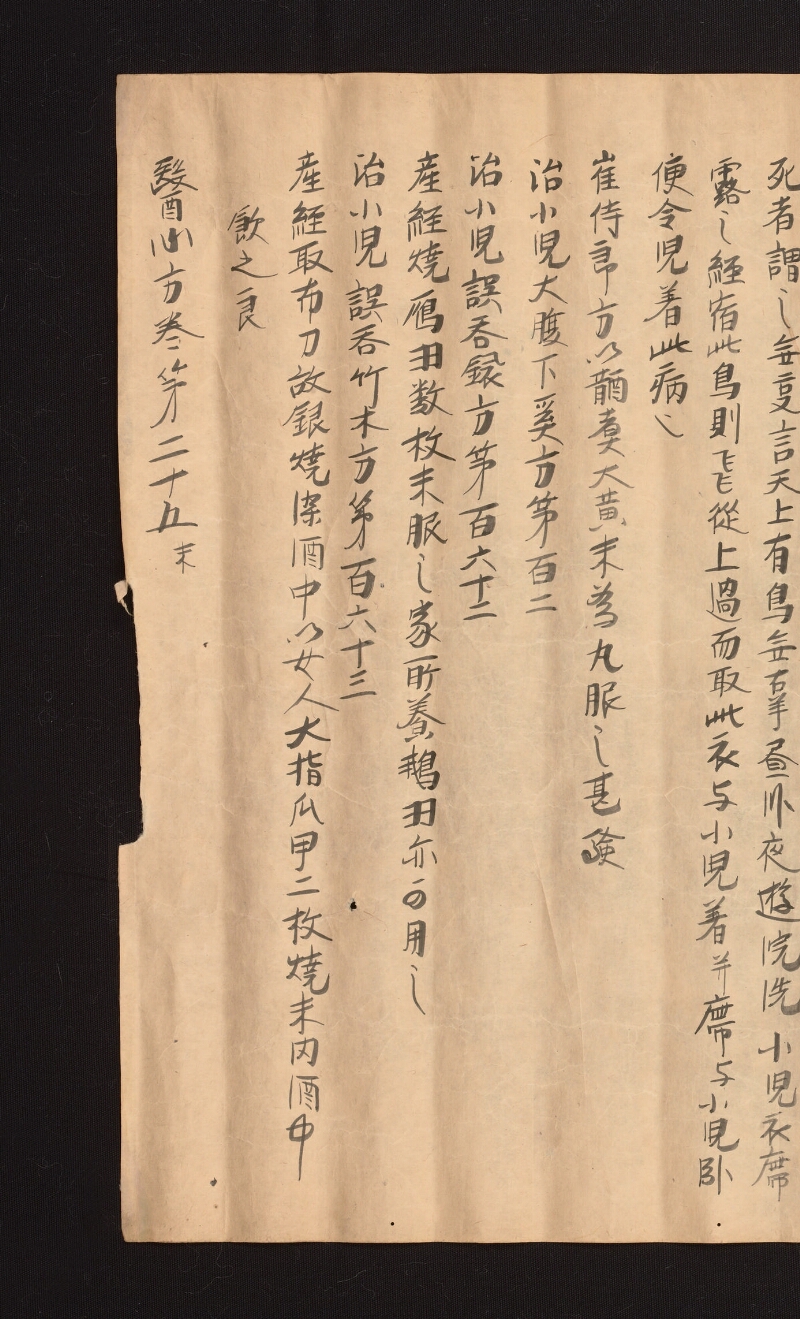 死者謂之無辜言天上有鳥無辜昼卧夜遊浣洗小児衣席
露之経宿此鳥則飛從上過而取此衣与小児着并席与小児卧
便令児着此病之
崔侍郎方以醋煑大黄末為丸服之甚験
治小児大腹下奚方第百二
治小児誤呑方第百六十二
産経焼鴈羽数枚末服之家所養鵝羽亦可用之
治小児誤呑竹木方第百六十三
産経取布刀故鋸焼染酒中以女人大指爪甲二枚焼末内酒中
飲之良
醫心方巻第二十五末